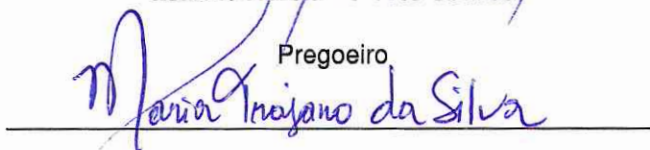 Pregoeiro
Maria Trajano da Silva